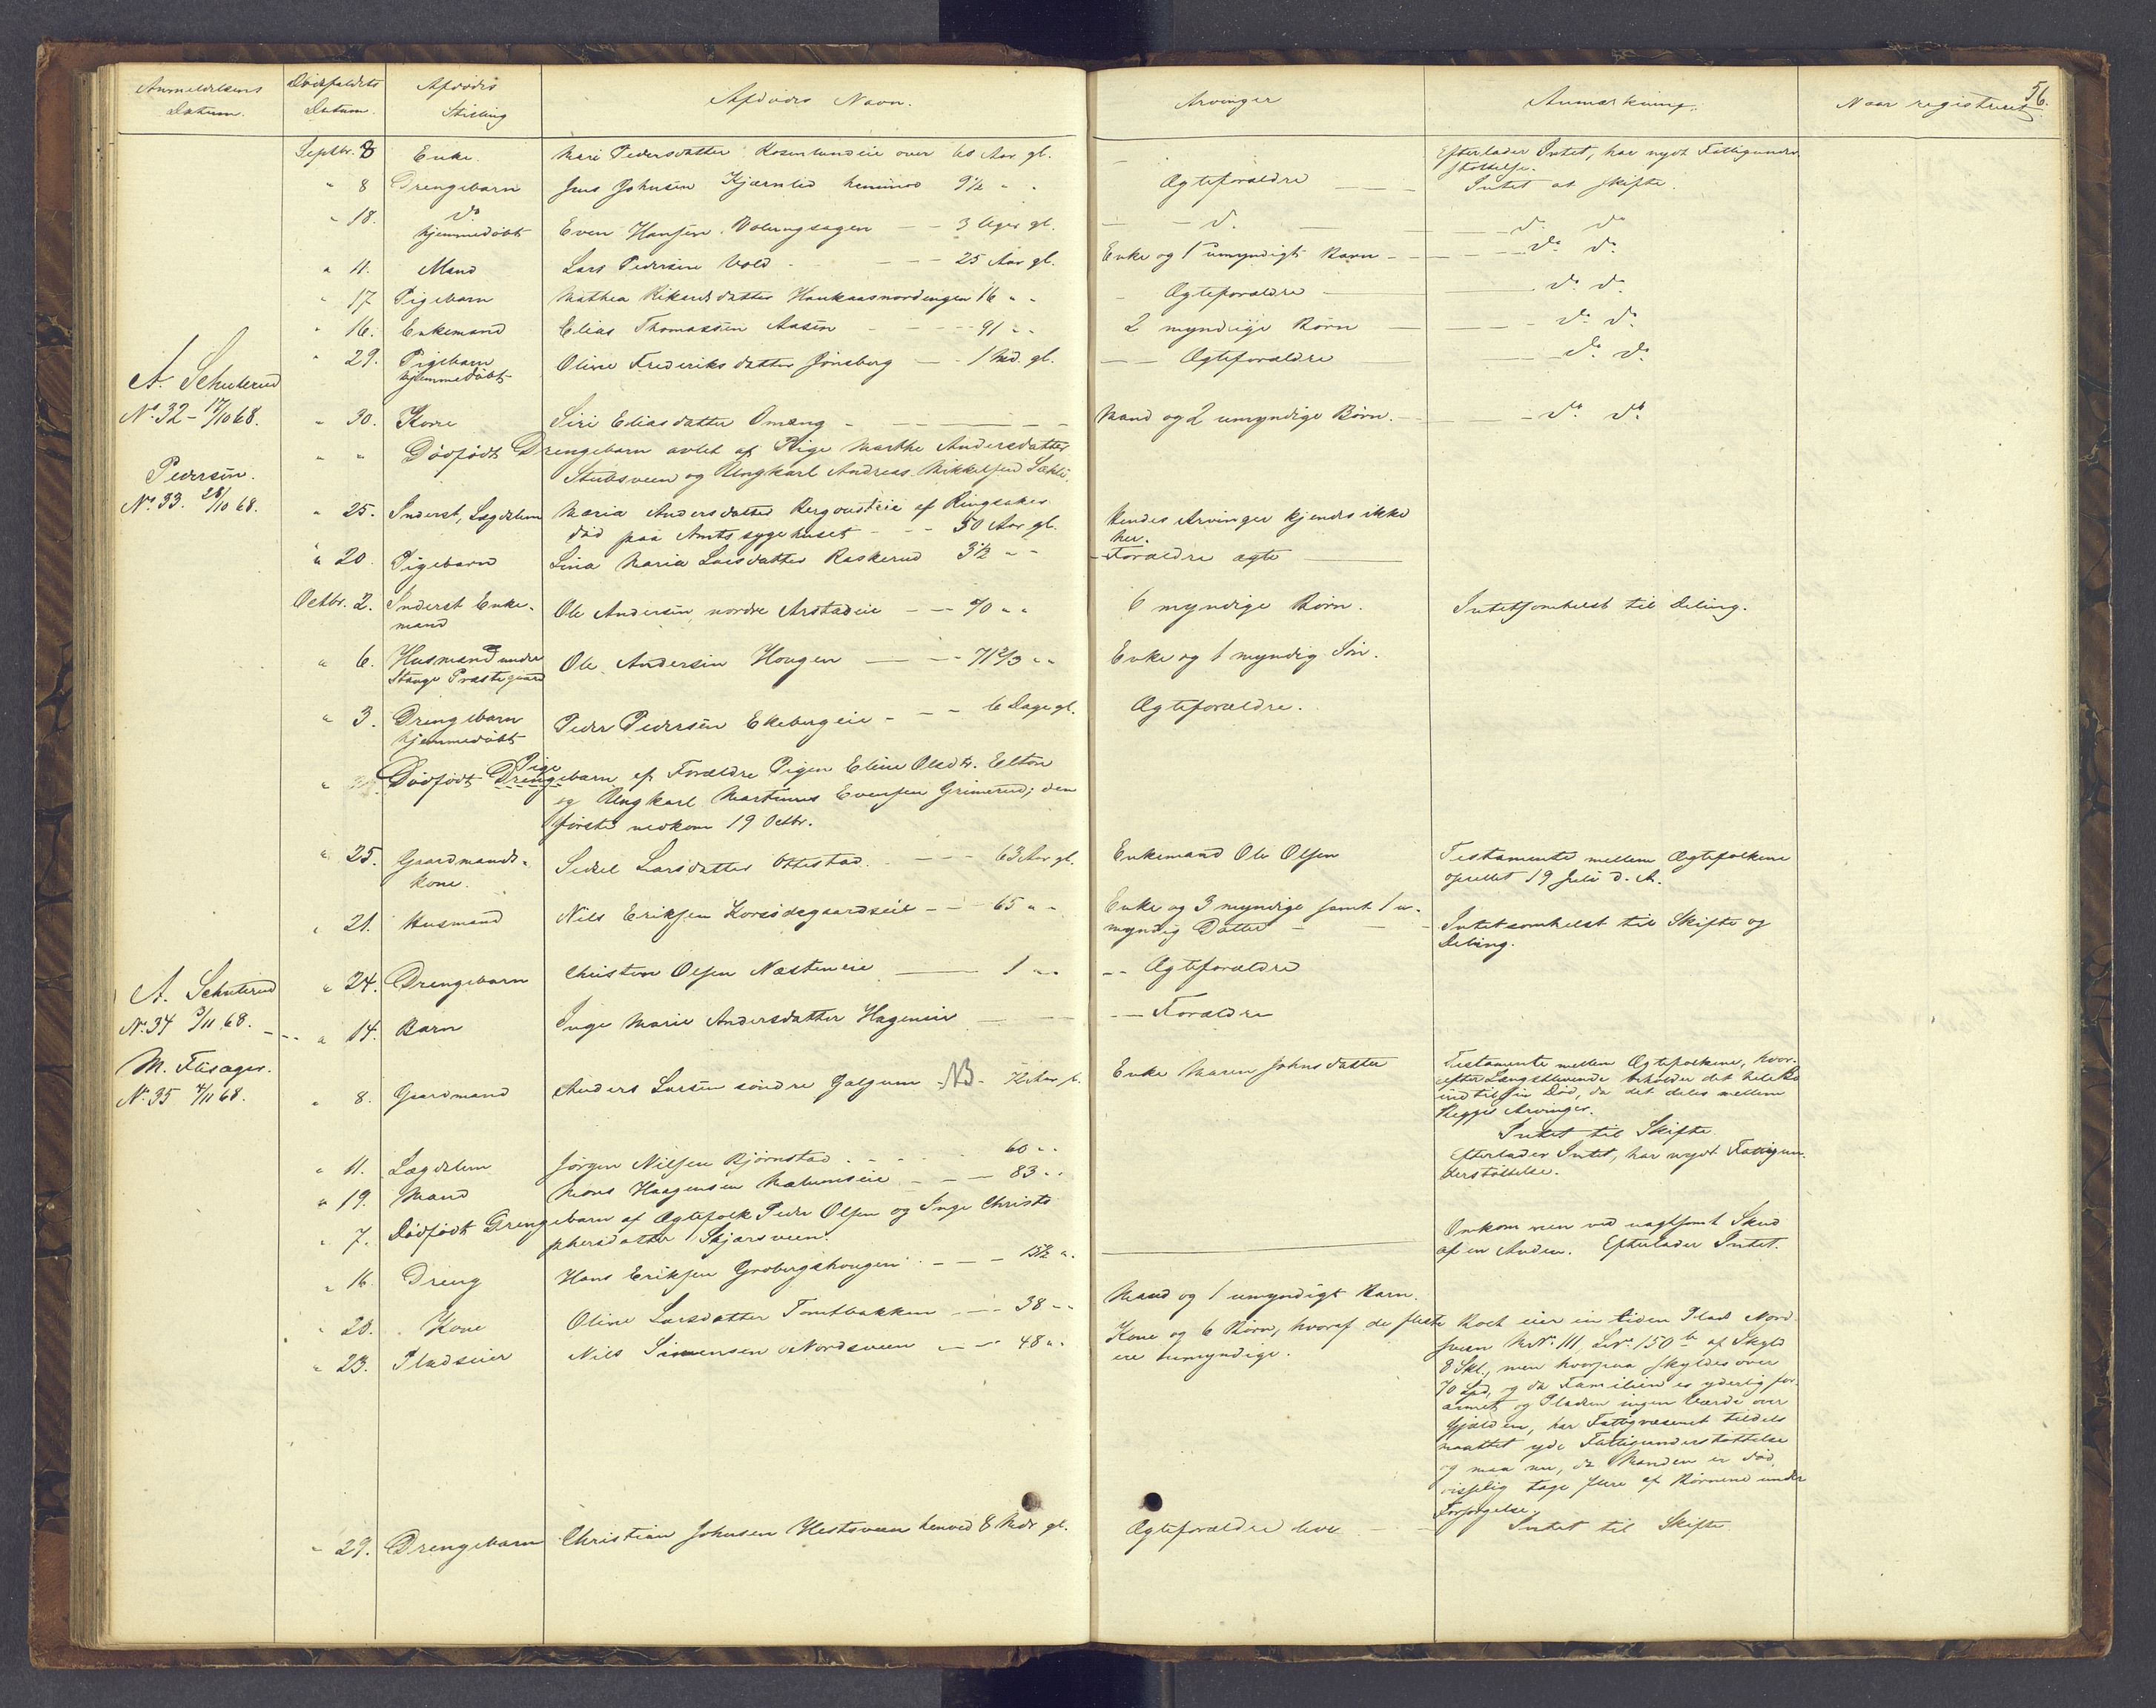 56.
Anmeldelsens Datum. Dødsfaldets Datum. Afdødes Stilling Afdødes Navn. Arvinger Anmærkning. Naar registreret
Septbr. 8 Enke. Mari Pedersdatter Rosenlundeie over 60 Aar gl. Efterlader Intet, har nydt Fattigunder-
støttelse.
" 8 Drengebarn Jens Johnsen Kjærnlid henimod 9½ " " Ægteforældre Intet at skifte.
" 18. do hjemmedøbt Even Hansen 3 Uger gl. do do do
" 11. Mand Lars Pedersen Vold 25 Aar gl. Enke og 1 umyndigt Barn do do
" 17 Pigebarn Mathea Haukaasnordengen 16 " " Ægteforældre do do
" 16. Enkemand Elias Thomassen Aasen 91 " " 2 myndige Børn do do
" 29. Pigebarn hjemmedøbt Oline Frederiksdatter Jønsberg 1 Md. gl. Ægteforældre do do
A. Schulerud
No 32 - 17/10 68. " 30. Kone Siri Eliasdatter Omeng Mand og 2 umyndige Børn. do do
" " Dødfødt Drengebarn avlet af Pige Marthe Andersdatter
Stubsveen og Ungkarl Andreas Mikkelsen
Pedersen.
No 33. 28/10 68. " 25. Inderst, Lægdslem Maria Andersdatter af Ringsaker
død paa Amtssygehuset 50 Aar gl. Hendes Arvinger kjendes ikke
her.
" 20. Pigebarn Lina Maria Larsdatter Raskerud 3½ " " Forældre ægte
Octbr. 2. Inderst Enke-
mand Ole Andersen, nordre Arstadeie 70 " " 6 myndige Børn. Intetsomhelst til Deling.
" 6. Husmand under
Stange Præstegaard Ole Andersen Hougen 71 2/3 " " Enke og 1 myndig Søn.
" 3. Drengebarn
hjemmedøbt Peder Pedersen Ekebergeie 6 Dage gl. Ægteforældre.
Pige
" Dødfødt Drengebarn af Forældre Pigen Eline Olsdtr. Elton
og Ungkarl Martinus Evensen Grimerud; den
første nedkom 19 Octbr.
" 25. Gaardmands-
kone. Sidsel Larsdatter Ottestad. 63 Aar gl. Enkemand Ole Olsen Testamente mellem Ægtefolkene
oprettet 19 Juli d. A.
" 21. Husmand Nils Eriksen Korsødegaardseie 65 " " Enke og 3 myndige samt 1 u-
myndig Datter Intetsomhelst til Skifte og
Deling.
" 24. Drengebarn Christen Olsen Næsteneie 1 " " Ægteforældre
A. Schulerud
No 34 3/11 68. " 14. Barn Inge Marie Andersdatter Hageneie Forældre
M. Flisager.
No 35 4/11 68. " 8. Gaardmand Anders Larsen søndre Galgum NB. Enke Maren Johnsdatter Testamente mellem Ægtefolkene, hvor-
efter Længstlevende beholder det hele Bo
indtil sin Død, da det deles mellem
Begges Arvinger.
" 11. Lægdslem Jørgen Nilsen Bjørnstad 60 " " Intet til Skifte.
" 19. Mand Mons Haagensen 83 " " Efterlader Intet, har nydt Fattigun-
derstøttelse.
" 7. Dødfødt Drengebarn af Ægtefolk Peder Olsen og Inge Christo
phersdatter Skjærsveen.
" 16. Dreng Hans Eriksen Grobergshougen 15½ " Omkom ved uagtsomt Skud
af en Anden. Efterlader Intet.
" 20. Kone Oline Larsdatter Tomtbakken 38 " " Mand og 1 umyndigt Barn.
" 23. Pladseier Nils Simensen Nordsveen 48 " " Kone og 6 Børn, hvoraf de fleste
ere umyndige. Boet eier en liden Plads Nord-
sveen M.No 111, L.No 150 b af Skyld
8 Skl., men hvorpaa skyldes over
70 Spd, og da Familien er yderlig for-
armet og Pladsen ingen Værdi over
Gjælden, har Fattigvæsenet tildels
maattet yde Fattigunderstøttelse
og maa nu, da Manden er død,
tage flere af Børnene under
Forsørgelse.
" 29. Drengebarn Christian Johnsen Hestsveen henved 8 Mdr gl. Ægteforældre leve Intet til Skifte